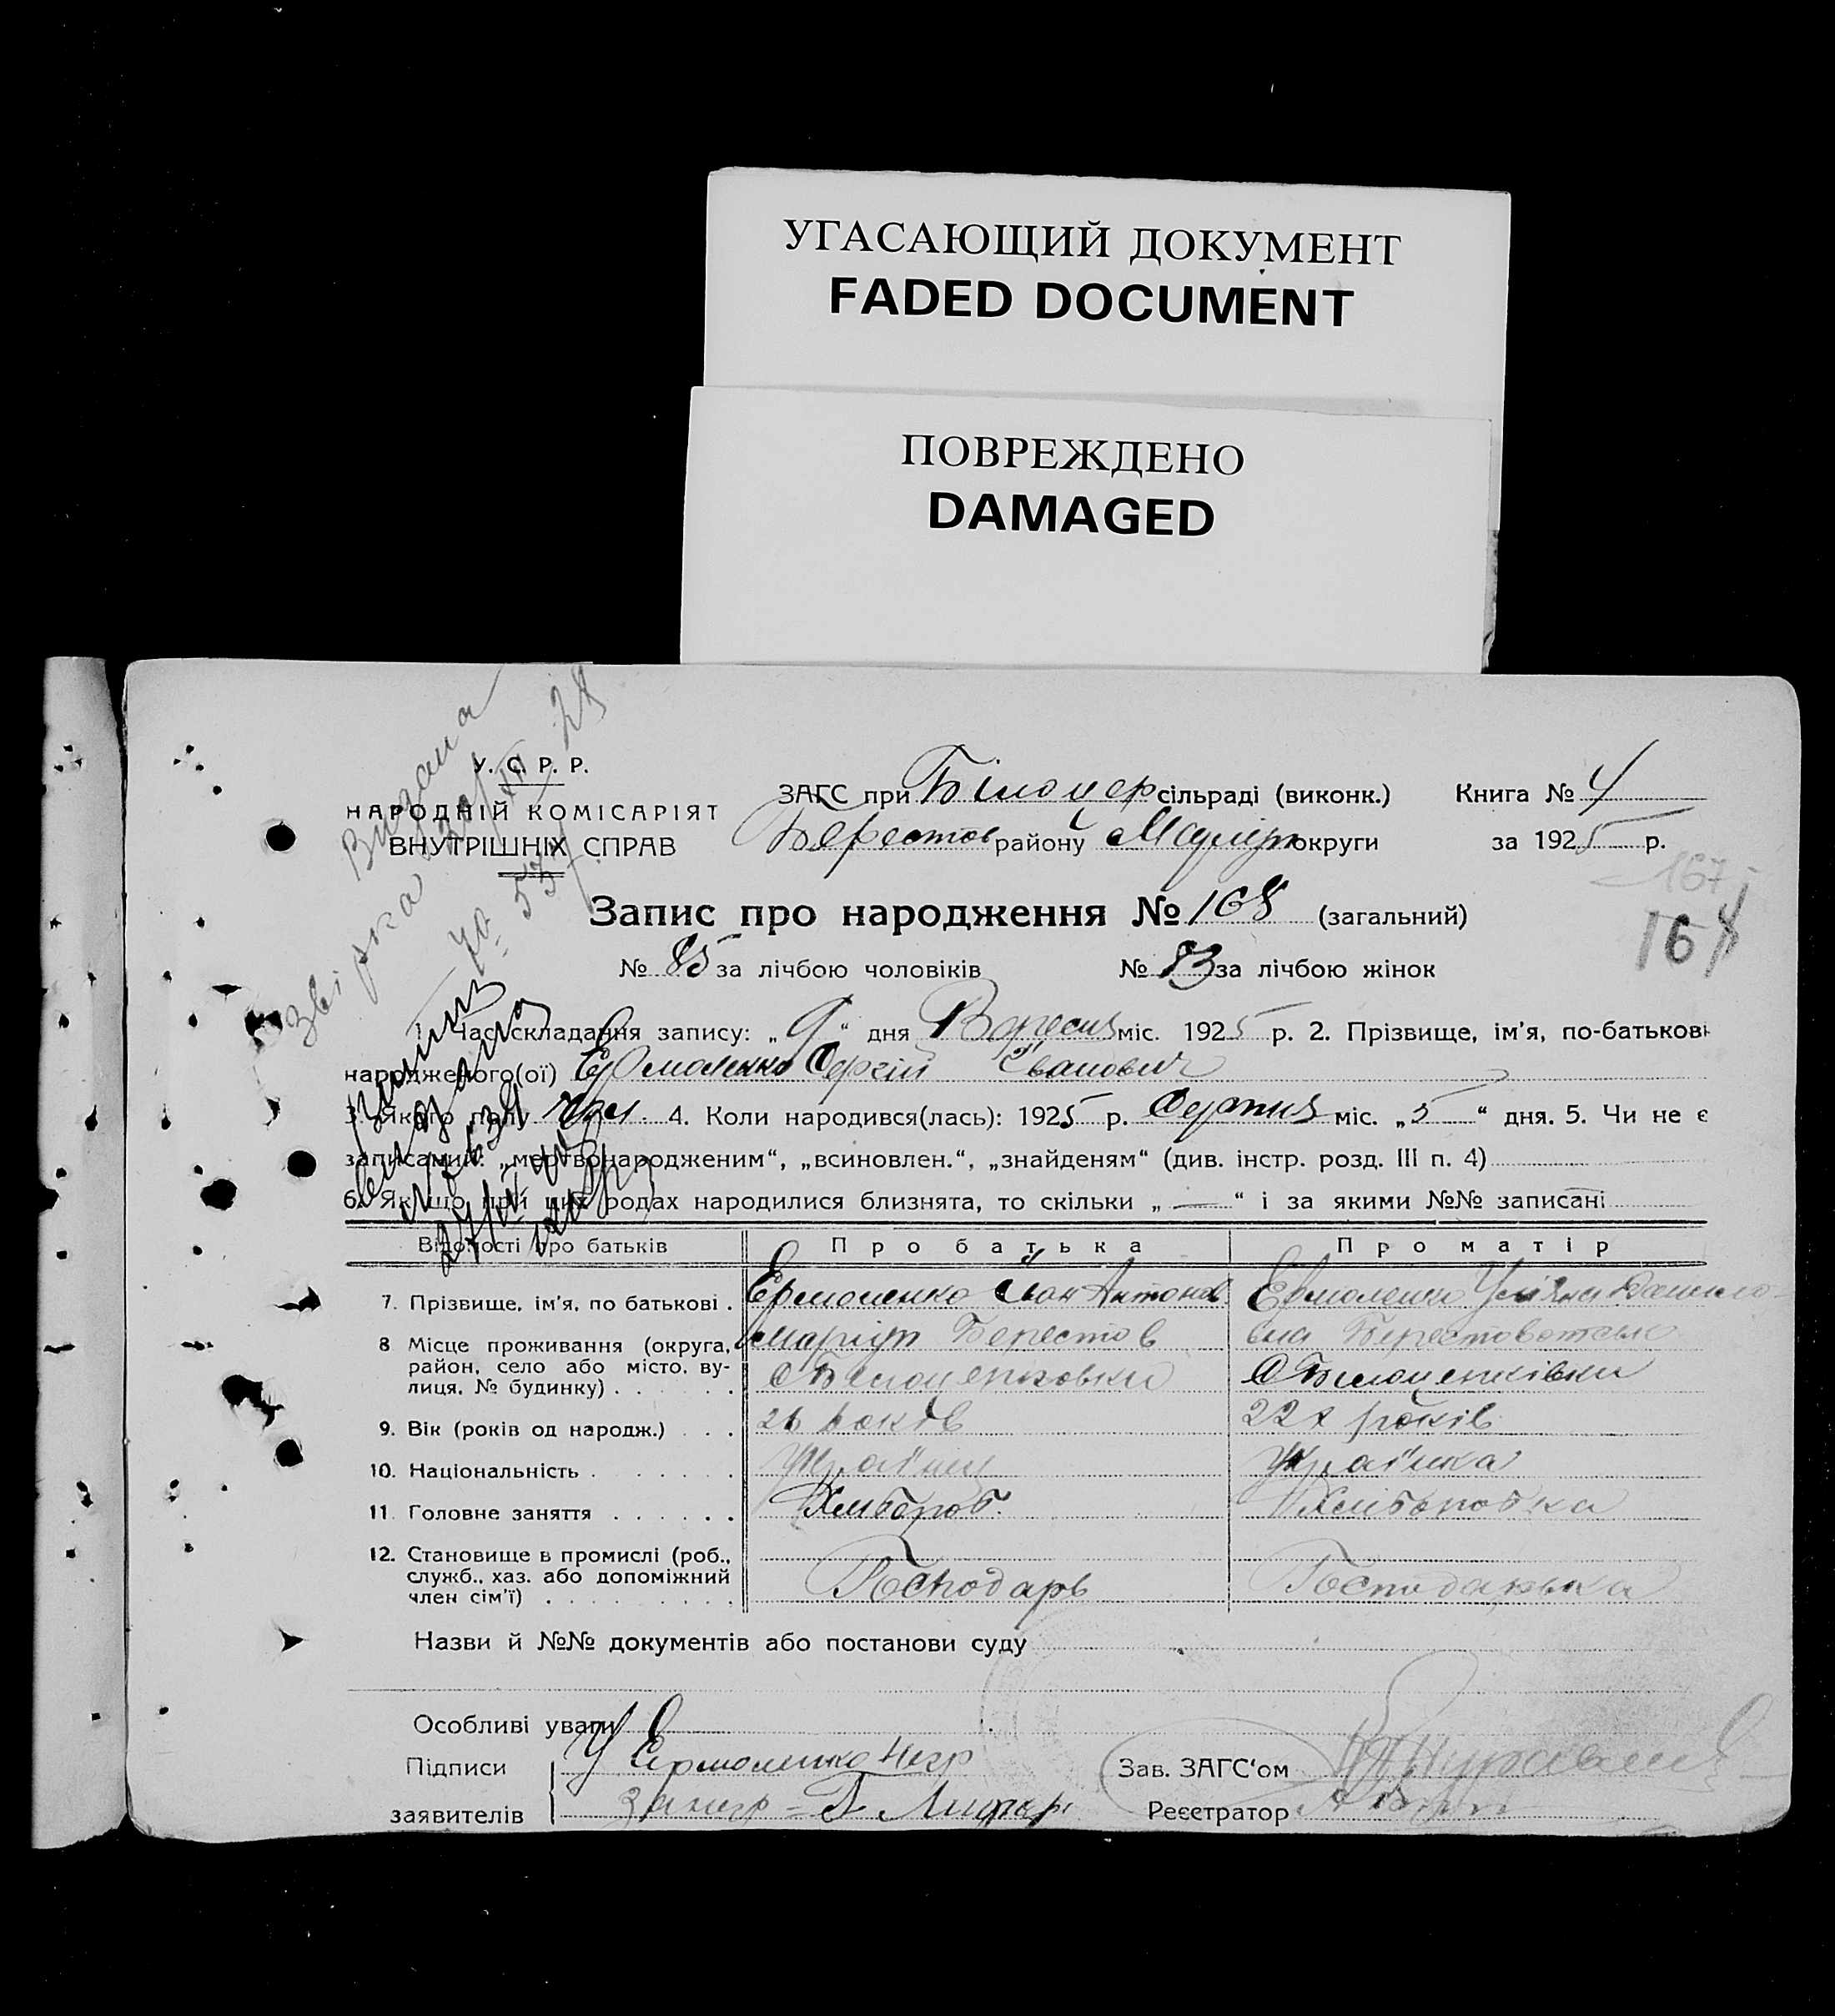 УГАСАЮЩИЙ ДОКУМЕНТ
FADED DOCUMENT
ПОВРЕЖДЕНО
DAMAGED
У. С. Р. Р.
НАРОДНІЙ КОМІСАРІЯТ
ВНУТРІШНІХ СПРАВ
Видана
звірка
ЗАГС при Білоцер сільраді (виконк.) Книга № 4
Берестов району округи за 1925 р.
167
Запис про народження № 168 (загальний)
№ 85 за лічбою чоловіків № 83 за лічбою жінок
1. Час складання запису: „ 9 “ дня Вересня міс. 1925 р. 2. Прізвище, ім'я, по-батькові
народженого(ої) Ермоленко Сергій Іванович
3. Якого полу чол. 4. Коли народився(лась): 1925 р. Серпня міс. „ 5 “ дня. 5. Чи не є
записаний: „мертвонародженим“, „всиновлен.“, „знайденям“ (див. інстр. розд. III п. 4)
6. Якщо при цих родах народилися близнята, то скільки „ — “ і за якими №№ записані
Відомості про батьків Про батька Про матір
7. Прізвище, ім'я, по батькові . Ермоленко Іван Антонов Ермоленко Уляна Данило-
8 Місце проживання (округа, Маріуп Берестов вна
район, село або місто, ву-
лиця, № будинку) . . . . . с Білоцерковки с Білоцерківки
9. Вік (років од народж.) . . . 26 років 22 років
10. Національність . . . . . . . Українец Українка
11. Головне заняття . . . . . . Хлібороб. Хліборобка
12. Становище в промислі (роб.,
служб., хаз. або допоміжний Господарь Господарька
член сім'ї) . . . . . . . . .
Назви й №№ документів або постанови суду
Особливі уваги
Підписи У Ермоленко негр Зав. ЗАГС'ом
заявителів За негр Реєстратор